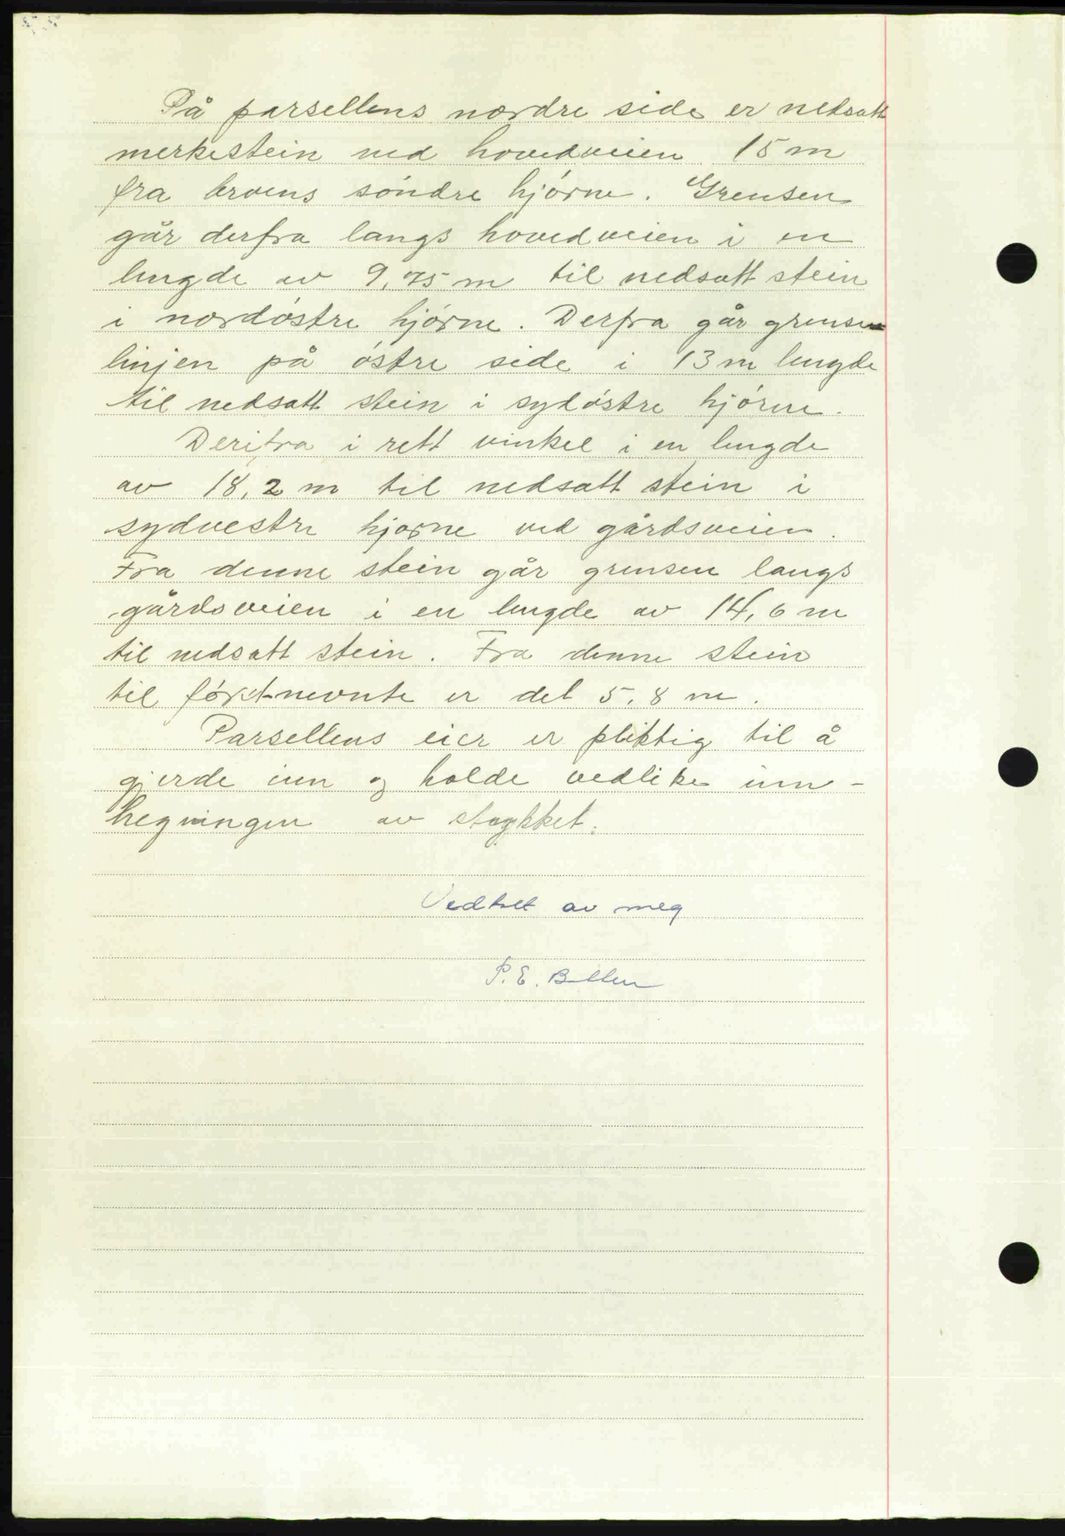 På parsellens nordre side er nedsatt
merkestein ved hovedveien 15 m
fra broens søndre hjørne. Grensen
går derfra langs hovedveien i en
lengde av 9,75 m til nedsatt stein
i nordøstre hjørne. Derfra går grense-
linjen på østre side i 13 m lengde
til nedsatt stein i sydøstre hjørne.
Derifra i rett vinkel i en lengde
av 18,2 m til nedsatt stein i
sydvestre hjørne ved gårdsveien.
Fra denne stein går grensen langs
gårdsveien i en lengde av 14,6 m
til nedsatt stein. Fra denne stein
til førstnevnte er det 5,8 m.
Parsellens eier er pliktig til å
gjerde inn og holde vedlike inn-
hegningen av stykket.
Vedtatt av meg
P. E.